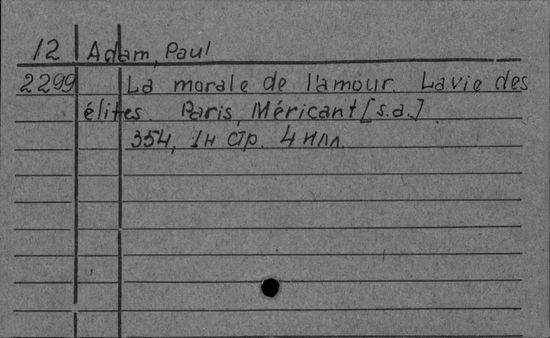 12 Adam, Paul
2299 La morale de l'amour. La vie des
élites. Paris, Méricant [s.a.]
354, 1н стр. 4 илл.